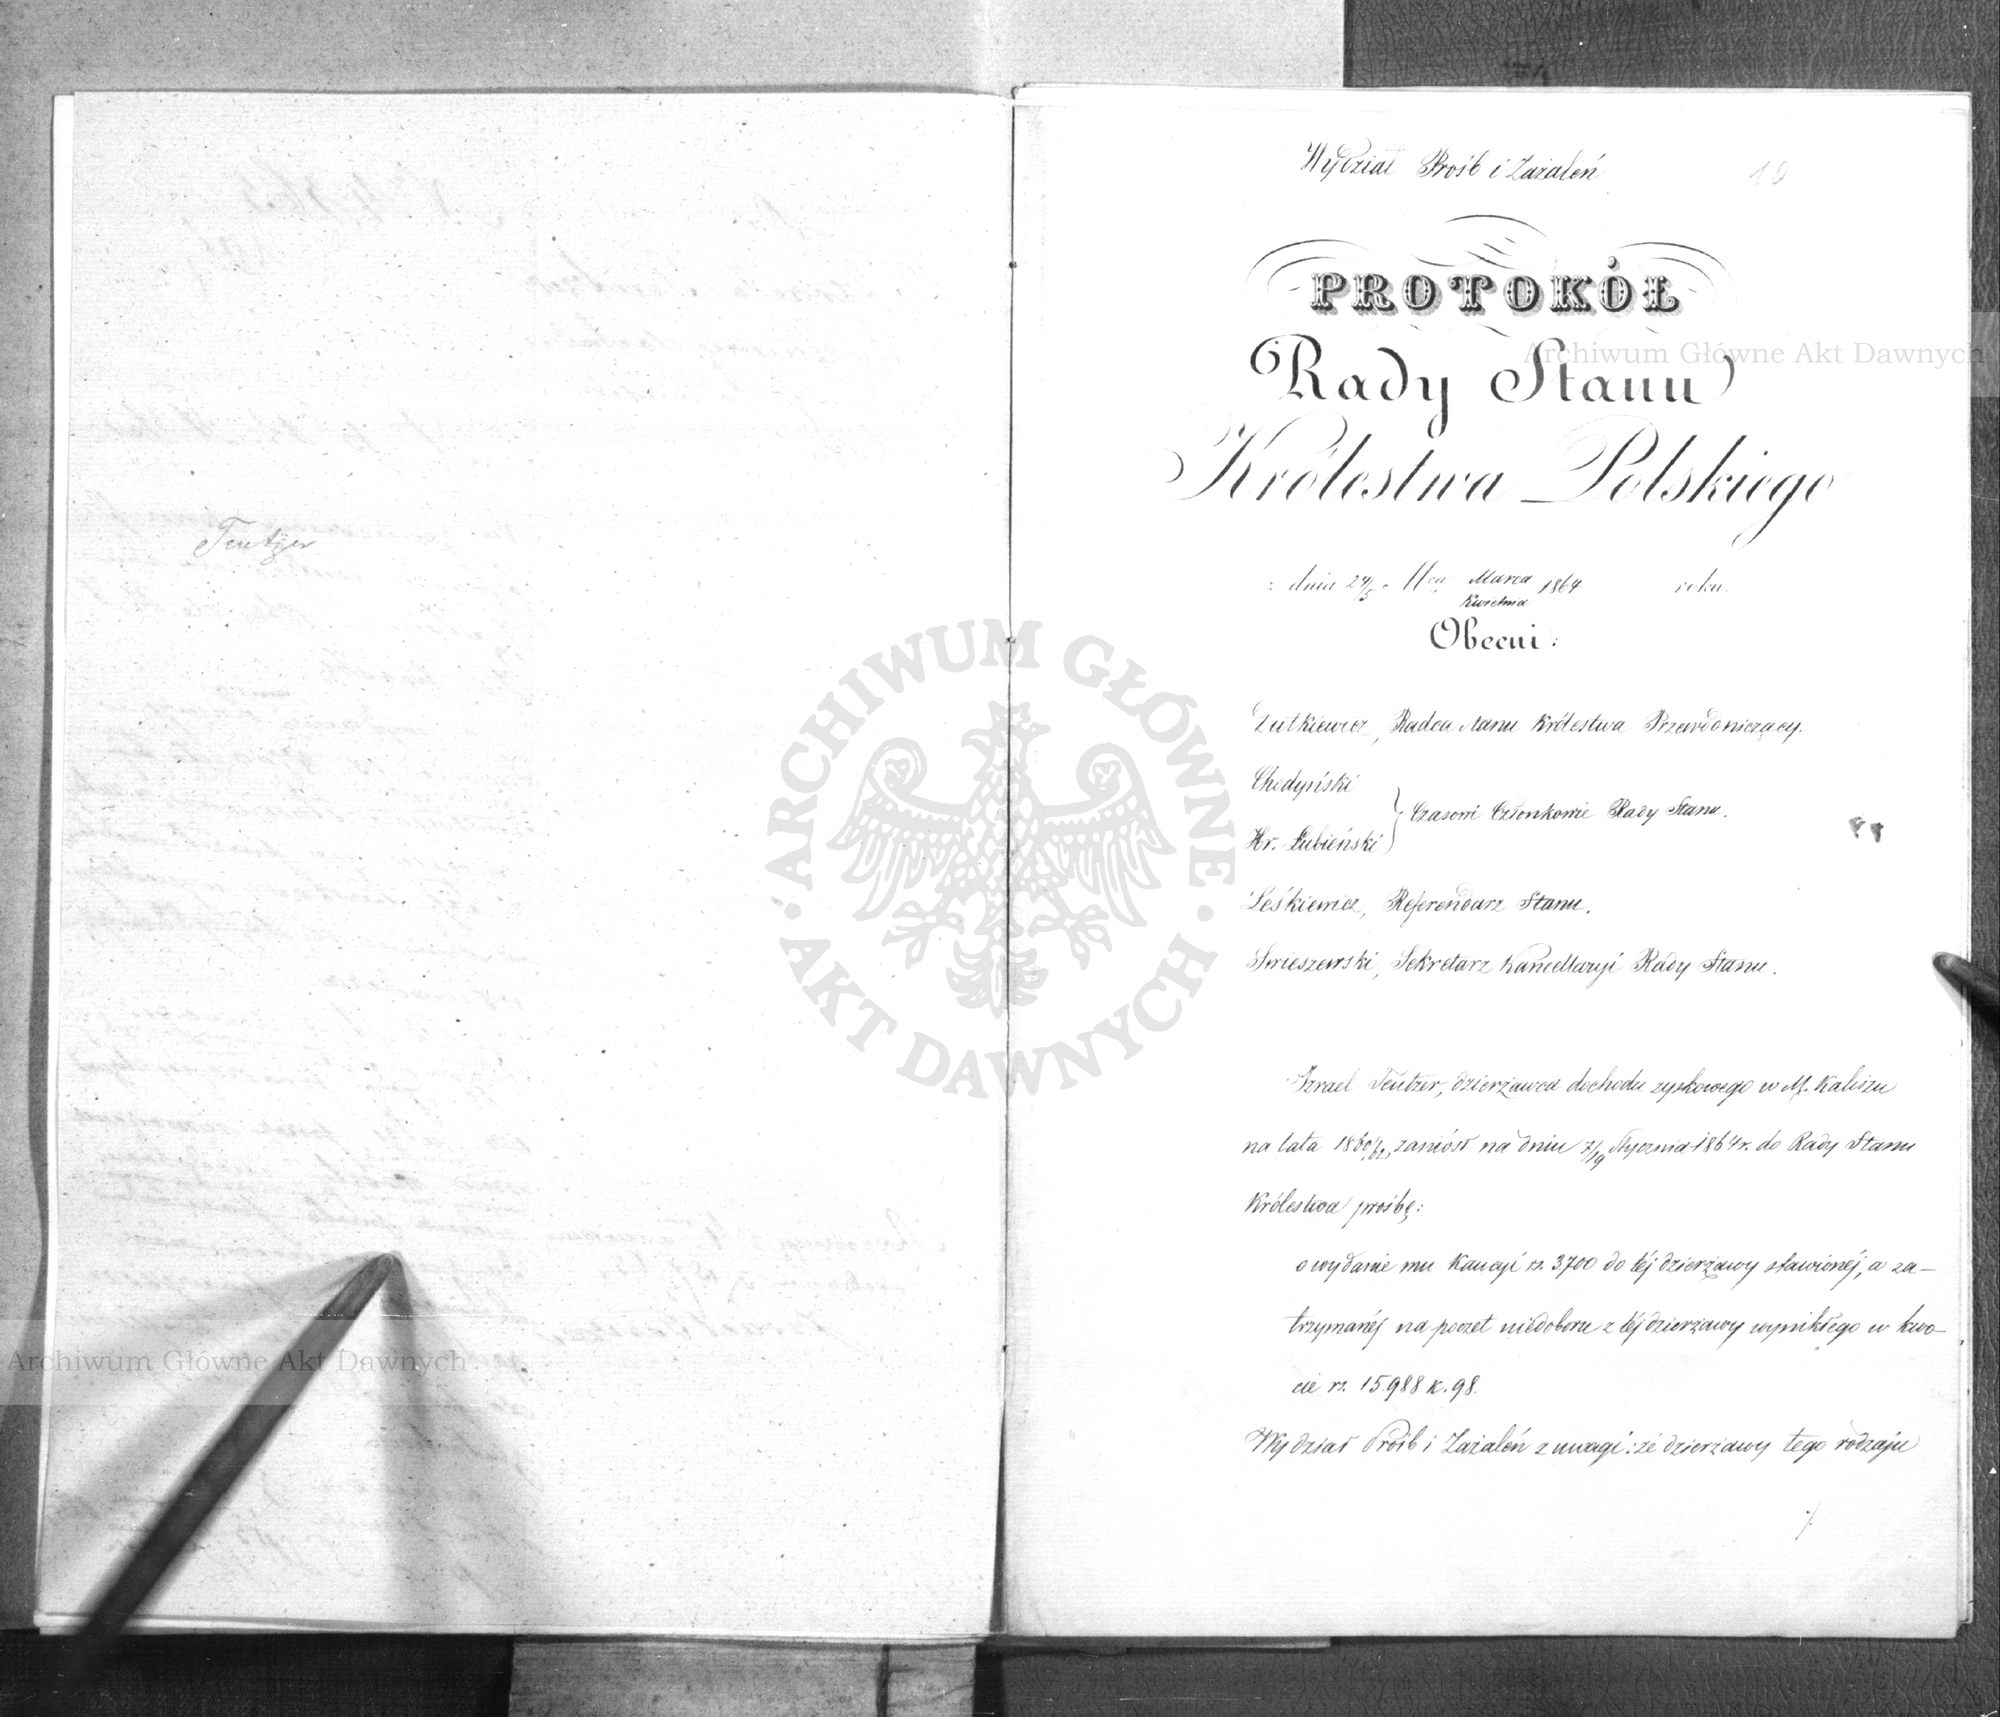 Teutzer
Wydział Próśb i Zażaleń
10
PROTOKÓŁ
Rady Stanu
Królestwa Polskiego
dnia 24/5 Marca
Kwietnia 1864 roku.
Obecni:
Zutkiewicz, Radca Stanu Królestwa Przewodniczący.
Chodyński
Hr. Łubieński } Czasowi Członkowie Rady Stanu.
Leśkiewicz, Referendarz Stanu.
Swieszewski, Sekretarz Kancellaryi Rady Stanu.
Izrael Teutzer, dzierżawca dochodu zyskowego w M. Kaliszu
na lata 1860/62, zaniósł na dniu 7/19 Stycznia 1864 r. do Rady Stanu
Królestwa prośbę:
o wydanie mu Kaucyi rs. 3700 do téj dzierżawy stawionéj, a za-
trzymanéj na poczet niedoboru z téj dzierżawy wynikłego w kwo-
cie rs. 15.988 k. 98.
Wydział Próśb i Zażaleń z uwagi: że dzierżawy tego rodzaju
ARCHIWUM GŁÓWNE AKT DAWNYCH
Archiwum Główne Akt Dawnych
Archiwum Główne Akt Dawnych